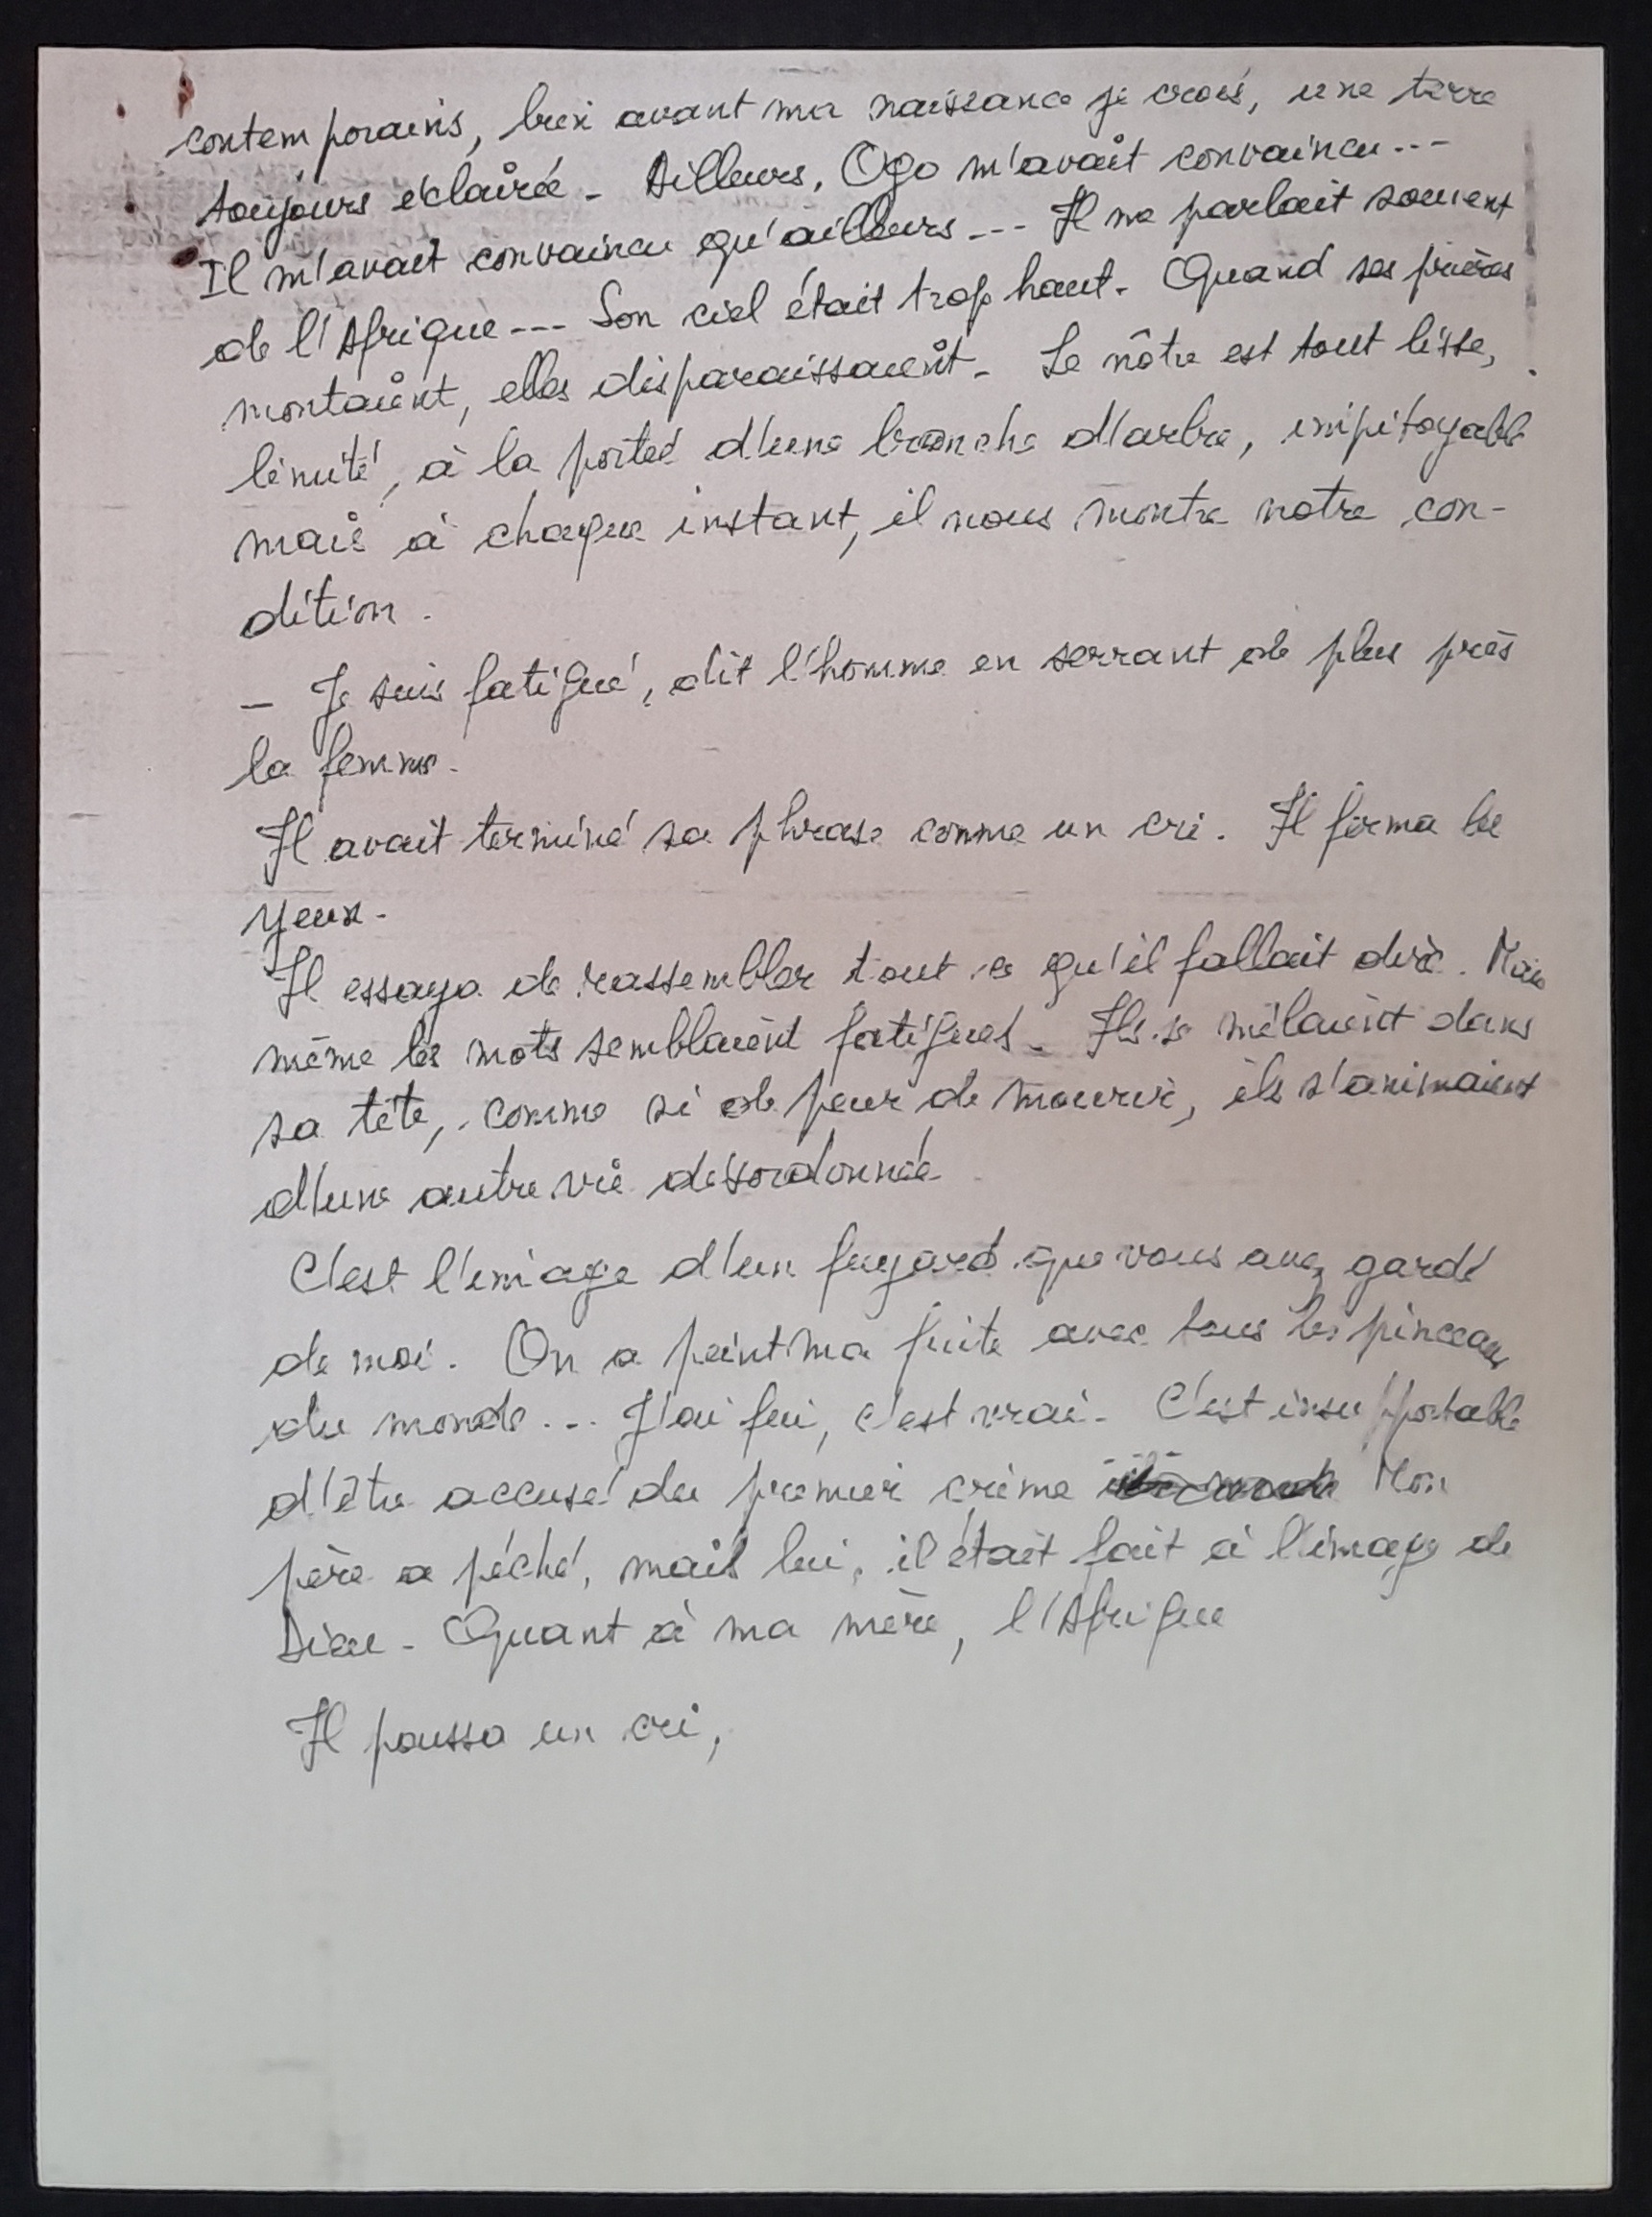 contemporains, bien avant ma naissance je crois, une terre
toujours éclairée. Ailleurs, Ogo m'avait convaincu...
Il m'avait convaincu qu'ailleurs... Il me parlait souvent
de l'Afrique... Son ciel était trop haut. Quand ses prières
montaient, elles disparaissaient. Le nôtre est tout lisse,
limité, à la portée d'une branche d'arbre, impitoyable
mais à chaque instant, il nous montre notre con-
dition.
— Je suis fatigué, dit l'homme en serrant de plus près
la femme.
Il avait terminé sa phrase comme un cri. Il ferma les
yeux.
Il essaya de rassembler tout ce qu'il fallait dire. Mais
même les mots semblaient fatigués. Ils se mêlaient dans
sa tête, comme si de peur de mourir, ils s'animaient
d'une autre vie désordonnée
C'est l'image d'un fuyard que vous avez gardé
de moi. On a peint ma fuite avec tous les pinceaux
du monde... J'ai fui, c'est vrai. C'est insupportable
d'être accusé du premier crime Mon
père a péché, mais lui, il était fait à l'image de
Dieu. Quant à ma mère, l'Afrique
Il poussa un cri,